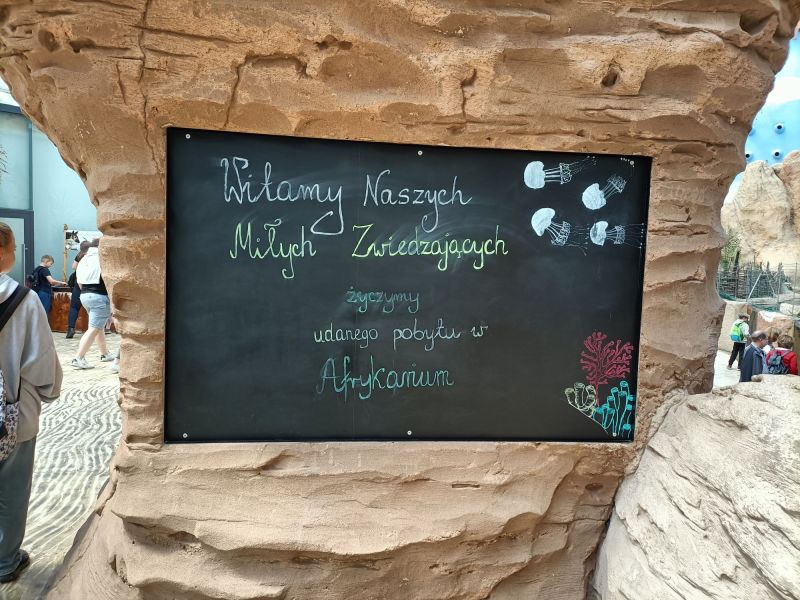 Witamy Naszych
Miłych Zwiedzających
życzymy
udanego pobytu w
Afrykarium